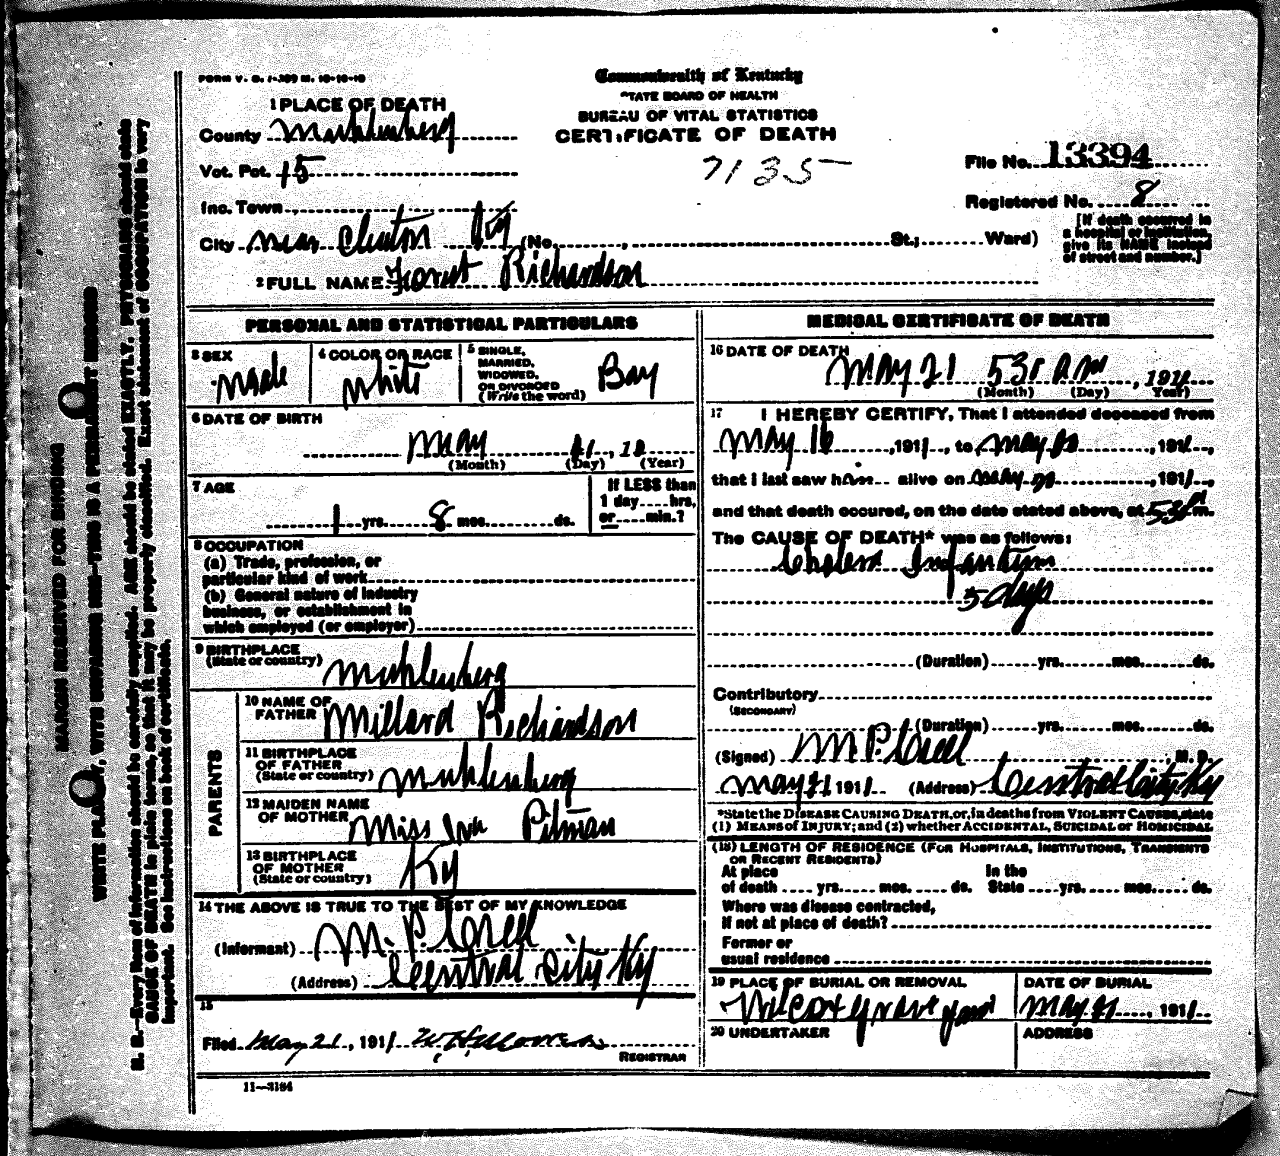 FORM V. S. 1-309 M. 10-10-10
Commonwealth of Kentucky
STATE BOARD OF HEALTH
BUREAU OF VITAL STATISTICS
CERTIFICATE OF DEATH
7135
File No. 13394
Registered No. 8
[If death occurred in a hospital or institution, give its NAME instead of street and number.]
1 PLACE OF DEATH
County Muhlenberg
Vot. Pct. 15
Inc. Town
City near Ky (No. , St.; Ward)
2 FULL NAME Forest Richardson
PERSONAL AND STATISTICAL PARTICULARS
3 SEX Male
4 COLOR OR RACE White
5 SINGLE, MARRIED, WIDOWED, OR DIVORCED (Write the word) Bay
6 DATE OF BIRTH
May , 
(Month) (Day) (Year)
7 AGE
1 yrs. 8 mos. ds.
If LESS than 1 day hrs. or min.?
8 OCCUPATION
(a) Trade, profession, or particular kind of work
(b) General nature of industry business, or establishment in which employed (or employer)
9 BIRTHPLACE (State or country) Muhlenberg
PARENTS
10 NAME OF FATHER Millard Richardson
11 BIRTHPLACE OF FATHER (State or country) Muhlenberg
12 MAIDEN NAME OF MOTHER Miss Pitman
13 BIRTHPLACE OF MOTHER (State or country) Ky
14 THE ABOVE IS TRUE TO THE BEST OF MY KNOWLEDGE
(Informant) M. P.
(Address) Central City Ky
15
Filed May 21, 1911
REGISTRAR
11—3184
MEDICAL CERTIFICATE OF DEATH
16 DATE OF DEATH
May 21 530 AM, 1911
(Month) (Day) Year)
17 I HEREBY CERTIFY, That I attended deceased from
May 16, 1911, to May 20, 1911,
that I last saw him alive on May 20, 1911,
and that death occured, on the date stated above, at 530 A m.
The CAUSE OF DEATH* was as follows:
Cholera Infantum
5 days
(Duration) yrs. mos. ds.
Contributory
(SECONDARY)
(Duration) yrs. mos. ds.
(Signed) M P M. D.
May 21 1911 (Address) Central City Ky
*State the DISEASE CAUSING DEATH, or, in deaths from VIOLENT CAUSES, state
(1) MEANS OF INJURY; and (2) whether ACCIDENTAL, SUICIDAL or HOMICIDAL
(18) LENGTH OF RESIDENCE (FOR HOSPITALS, INSTITUTIONS, TRANSIENTS
OR RECENT RESIDENTS)
At place of death yrs. mos. ds.
In the State yrs. mos. ds.
Where was disease contracted,
if not at place of death?
Former or
usual residence
19 PLACE OF BURIAL OR REMOVAL
Graveyard
DATE OF BURIAL
May 21, 1911
20 UNDERTAKER
ADDRESS
MARGIN RESERVED FOR BINDING
WRITE PLAINLY, WITH UNFADING INK—THIS IS A PERMANENT RECORD
N. B.—Every item of information should be carefully supplied. AGE should be stated EXACTLY. PHYSICIANS should state
CAUSE OF DEATH in plain terms, so that it may be properly classified. Exact statement of OCCUPATION is very
important. See instructions on back of certificate.